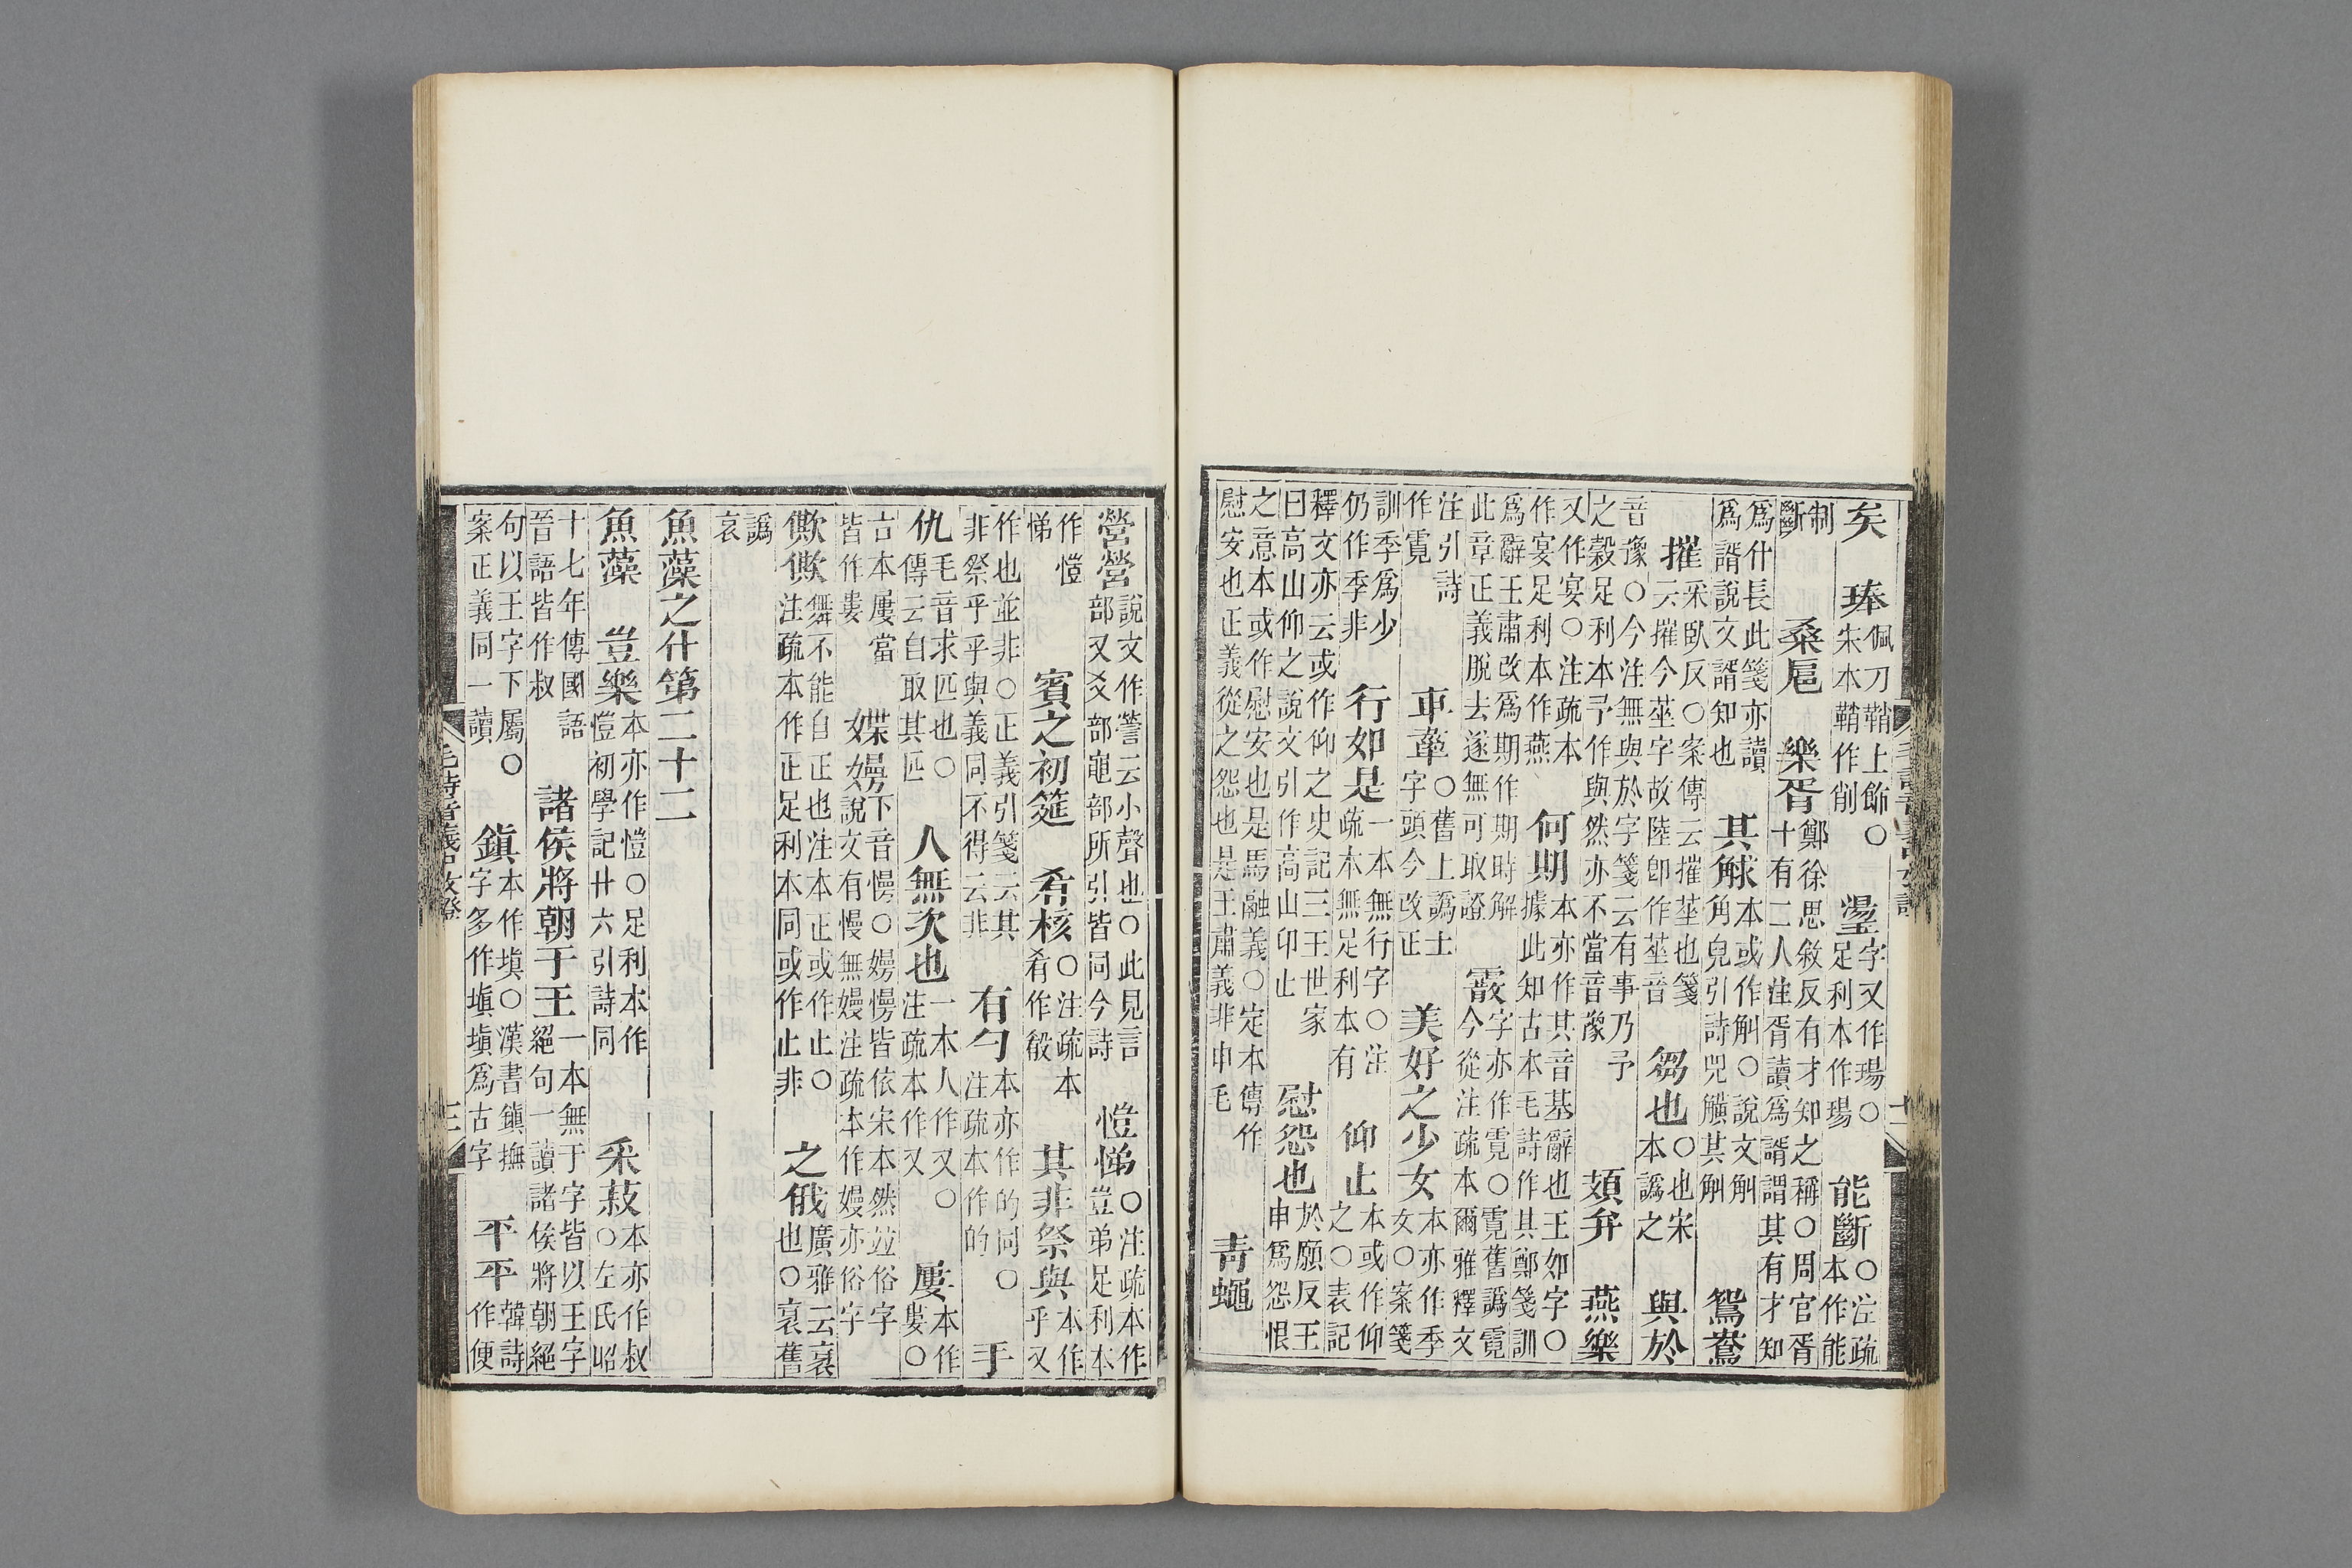 矣　琫佩刀鞘上飾○宋本鞘作削　璗字又作瑒○足利本作瑒　能斷○注疏本作能
制斷　桑扈　樂胥鄭徐思敘反有才知之稱○周官胥十有二人注胥讀爲諝謂其有才知
爲什長此箋亦讀爲諝說文諝知也　其觩本或作觓○說文觓角皃引詩兕觵其觓　鴛鴦
摧采臥反○案傳云摧莝也箋云摧今莝字故陸卽作莝音　芻也○也宋本譌之　與於
音豫○今注無與於字箋云有事乃予之穀足利本予作與然亦不當音豫　頍弁　燕樂
又作宴○注疏本作宴足利本作燕　何期本亦作其音基辭也王如字○據此知古本毛詩作其鄭箋訓
爲辭王肅改爲期作期時解此章正義脫去遂無可取證　霰字亦作霓○霓舊譌霓今從注疏本爾雅釋文
注引詩作霓　車舝○舊上譌士字頭今改正　美好之少女本亦作季女○案箋
訓季爲少仍作季非　行如是一本無行字○注疏本無足利本有　仰止本或作仰之○表記
釋文亦云或作仰之史記三王世家曰高山仰之說文引作高山卬止　慰怨也於願反王申爲怨恨
之意本或作慰安也是馬融義○定本傳作慰安也正義從之怨也是王肅義非申毛　靑蠅
營營說文作謍云小聲也○此見言部又爻部黽部所引皆同今詩　愷悌○注疏本作豈弟足利本
作愷悌　賓之初筵　肴核○注疏本肴作殽　其非祭與本作乎又
作也並非○正義引箋云其非祭乎乎與義同不得云非　有勺本亦作的同○注疏本作的　于
仇毛音求匹也○傳云自取其匹　人無次也一本人作又○注疏本作又　屢本作婁○
古本屢當皆作婁　媟嫚下音慢○嫚慢皆依宋本然竝俗字說文有慢無嫚注疏本作嫚亦俗字
僛僛舞不能自正也注本正或作止○注疏本作正足利本同或作止非　之俄廣雅云衺也○衺舊
譌哀
魚藻之什第二十二
魚藻　豈樂本亦作愷○足利本作愷初學記卄六引詩同　采菽本亦作叔○左氏昭
十七年傳國語晉語皆作叔　諸侯將朝于王一本無于字皆以王字絕句一讀諸侯將朝絕
句以王字下屬○案正義同一讀　鎭本作塡○漢書鎭撫字多作塡塡爲古字　平平韓詩作便
毛詩音義中攷證